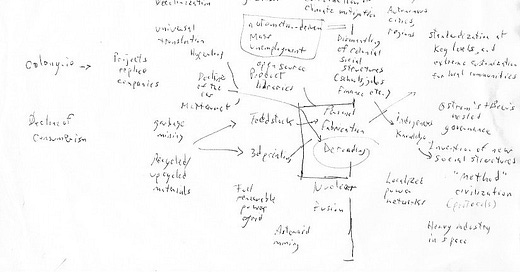 universal
translation
Hyperloop
automation-driven
mass
unemployment
Dismantling
of colonial
social
structures
(schools, jobs
finance etc.)
Autonomous
cities,
regions
standardization at
key levels, and
extreme customization
for local communities
colony.io →
Projects
replace
companies
open source
Product
libraries
Decline
of the
car
Decline of
consumerism
garbage
mining
Feedstock
3d printing
Recycled/
upcycled
materials
Fabrication
Indigenous
Knowledge
nested
governance
Invention of new
social structures
"method"
civilization
(protocols)
Localized
power
networks
renewable
power
Nuclear
Fusion
Asteroid
mining
Heavy industry
in space